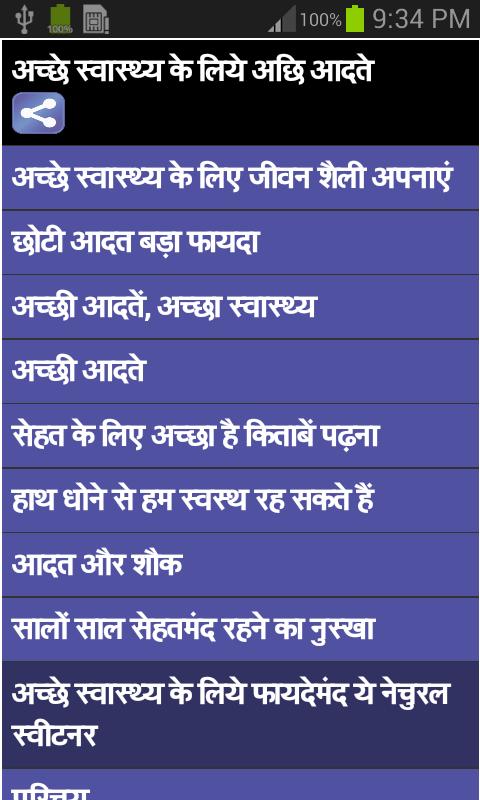 100%
100%
9:34 PM
अच्छे स्वास्थ्य के लिये अछि आदते
अच्छे स्वास्थ्य के लिए जीवन शैली अपनाएं
छोटी आदत बड़ा फायदा
अच्छी आदतें, अच्छा स्वास्थ्य
अच्छी आदते
सेहत के लिए अच्छा है किताबें पढ़ना
हाथ धोने से हम स्वस्थ रह सकते हैं
आदत और शौक
सालों साल सेहतमंद रहने का नुस्खा
अच्छे स्वास्थ्य के लिये फायदेमंद ये नेचुरल
स्वीटनर
परिचय